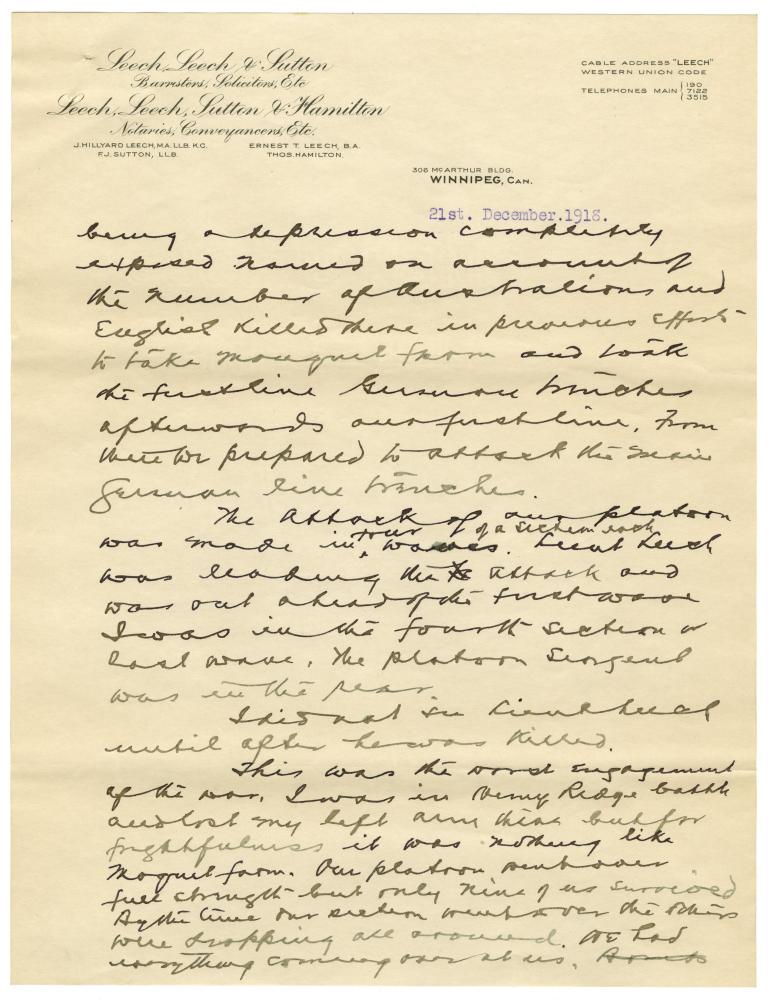 Leech, Leech & Sutton
Barristers, Solicitors, Etc
Leech, Leech, Sutton & Hamilton
Notaries, Conveyancers, Etc.
J. HILLYARD LEECH, M.A. LL.B. K.C. ERNEST T. LEECH, B.A.
F.J. SUTTON, LL.B. THOS. HAMILTON.
CABLE ADDRESS "LEECH"
WESTERN UNION CODE
TELEPHONES MAIN { 190
7122
3515
306 McARTHUR BLDG.
WINNIPEG, CAN.
21st. December.1918.
being a depression completely
exposed named on account of
the number of Australians and
English killed there in previous efforts
to take Mouquet farm and took
the first line German trenches
afterwards our first line. From
there we prepared to attack the main
German line trenches.
The attack of our platoon
was made in four waves. of a section each Lieut Leech
was leading the attack and
was out ahead of the first wave
I was in the fourth section or
last wave. The platoon Sergent
was in the rear
I did not see Lieut Leech
until after he was killed.
This was the worst engagement
of the war. I was in Vimy Ridge battle
and lost my left arm there but for
frightfulness it was nothing like
Moquet farm. Our platoon went over
full strength but only nine of us survived
By the time our section went over the others
were dropping all around. We had
everything coming over at us.